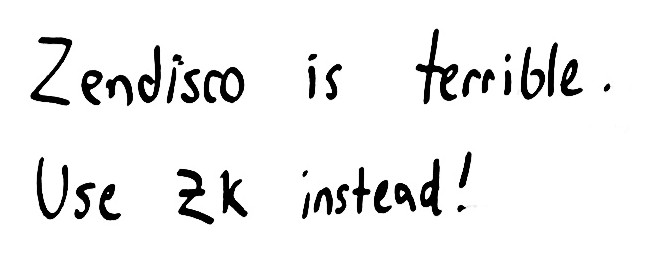 Zendisco is terrible.
Use zk instead!